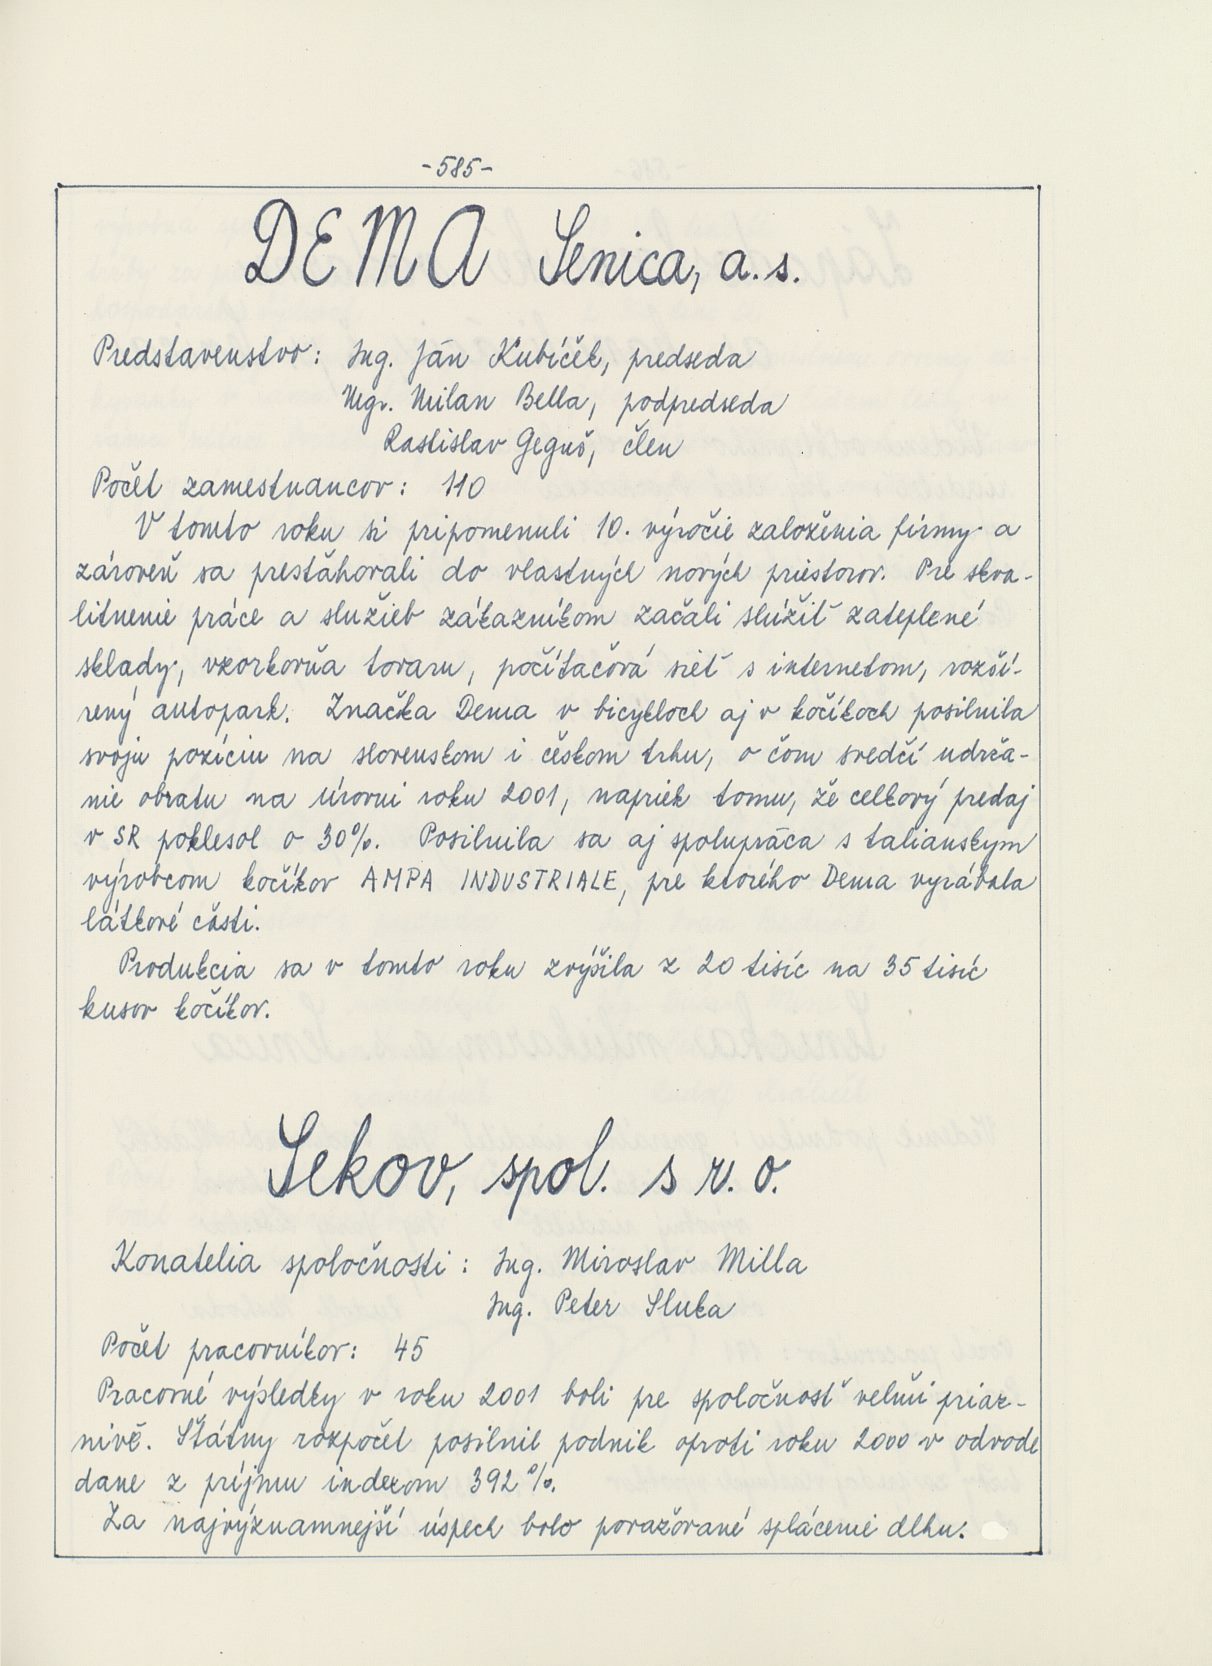 -585-
DEMA Senica, a.s.
Predstavenstvo: Ing. Ján Kubíček, predseda
Mgr. Milan Bella, podpredseda
Rastislav Geguš, člen
Počet zamestnancov: 110
V tomto roku si pripomenuli 10. výročie založenia firmy a
zároveň sa presťahovali do vlastných nových priestorov. Pre skva-
litnenie práce a služieb zákazníkom začali slúžiť zateplené
sklady, vzorkovňa tovaru, počítačová sieť s internetom, rozší-
rený autopark. Značka Dema v bicykloch aj v kočíkoch posilnila
svoju pozíciu na slovenskom i českom trhu, o čom svedčí udrža-
nie obratu na úrovni roku 2001, napriek tomu, že celkový predaj
v SR poklesol o 30%. Posilnila sa aj spolupráca s talianskym
výrobcom kočíkov AMPA INDUSTRIALE, pre ktorého Dema vyrábala
látkové části.
Produkcia sa v tomto roku zvýšila z 20 tisíc na 35 tisíc
kusov kočíkov.
Sekov, spol. s r. o.
Konatelia spoločnosti: Ing. Miroslav Milla
Ing. Peter Sluka
Počet pracovníkov: 45
Pracovné výsledky v roku 2001 boli pre spoločnosť veľmi priaz-
nivé. Štátny rozpočet posilnil podnik oproti roku 2000 v odvode
dane z príjmu indexom 392%.
Za najvýznamnejší úspech bolo považované splácenie dlhu.